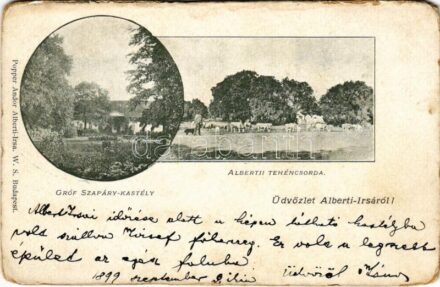 Popper Andor Alberti-Irsa. W. S. Budapest.
GRÓF SZAPÁRY-KASTÉLY
ALBERTII TEHÉNCSORDA.
Üdvözlet Alberti-Irsáról!
Alberti Irsai időzése alatt a képen látható kastélyba
volt szállva József főherceg. Ez volt a legszebb
épület az egész faluba
1899 szeptember Üdvözöl János